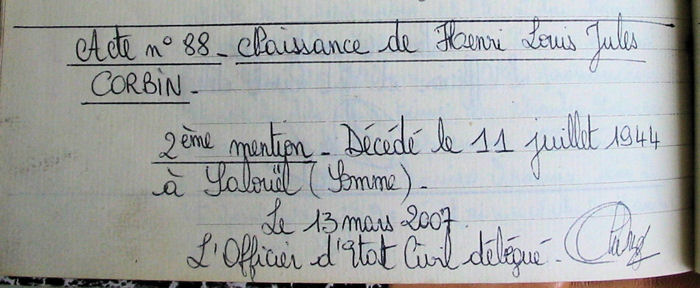 Acte n° 88 - Naissance de Henri Louis Jules
CORBIN -
2ème mention - Décédé le 11 juillet 1944
à Salouël (Somme) -
Le 13 mars 2007
L'Officier d'Etat Civil délégué -